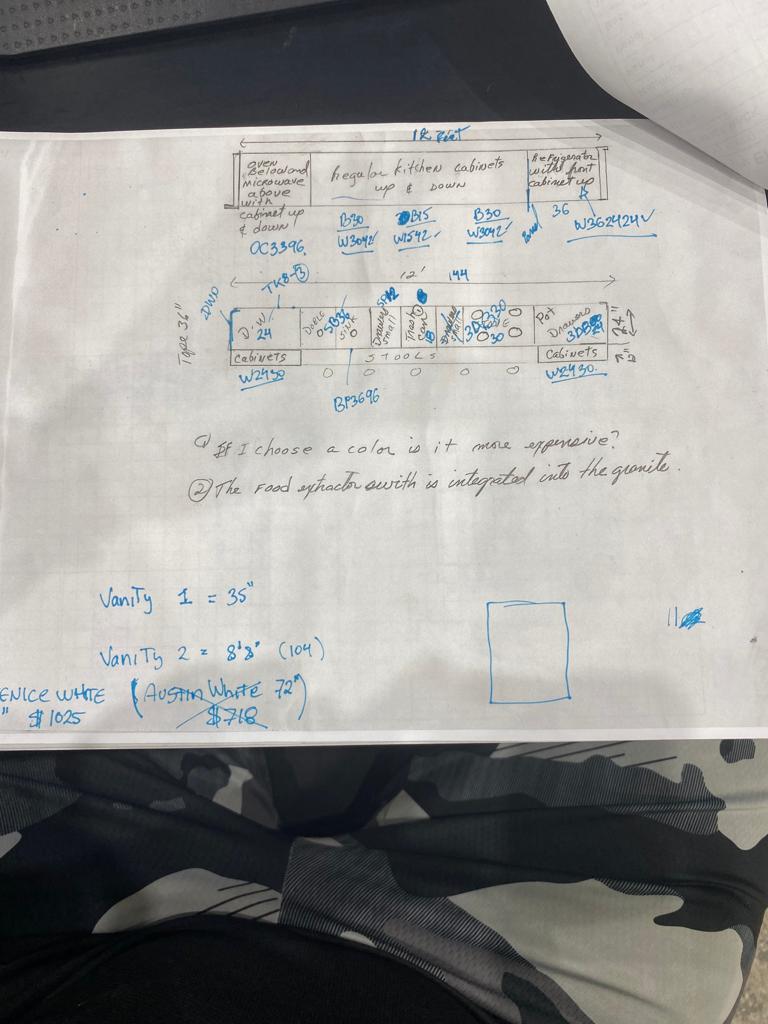 12 Feet
oven
Below and
microwave
above
with
cabinet up
& down
Regular kitchen cabinets
up & down
Refrigerator
with front
cabinet up
OC3396
B30
W3042
B15
W1542
B30
W3042
36
W362424
12' 144
TK8-3
DWP
Tape 36"
D.W.
24
SB36
SINK
Drawers
small
Trash
can
18
30
Pot
Drawers
24"
12"
cabinets
STOOLS
cabinets
W2430
W2430
BP3696
1) If I choose a color is it more expensive?
2) The Food extractor swith is integrated into the granite.
Vanity 1 = 35"
Vanity 2 = 8'8" (104)
ENICE WHITE (Austin White 72")
" $1025 $718
11